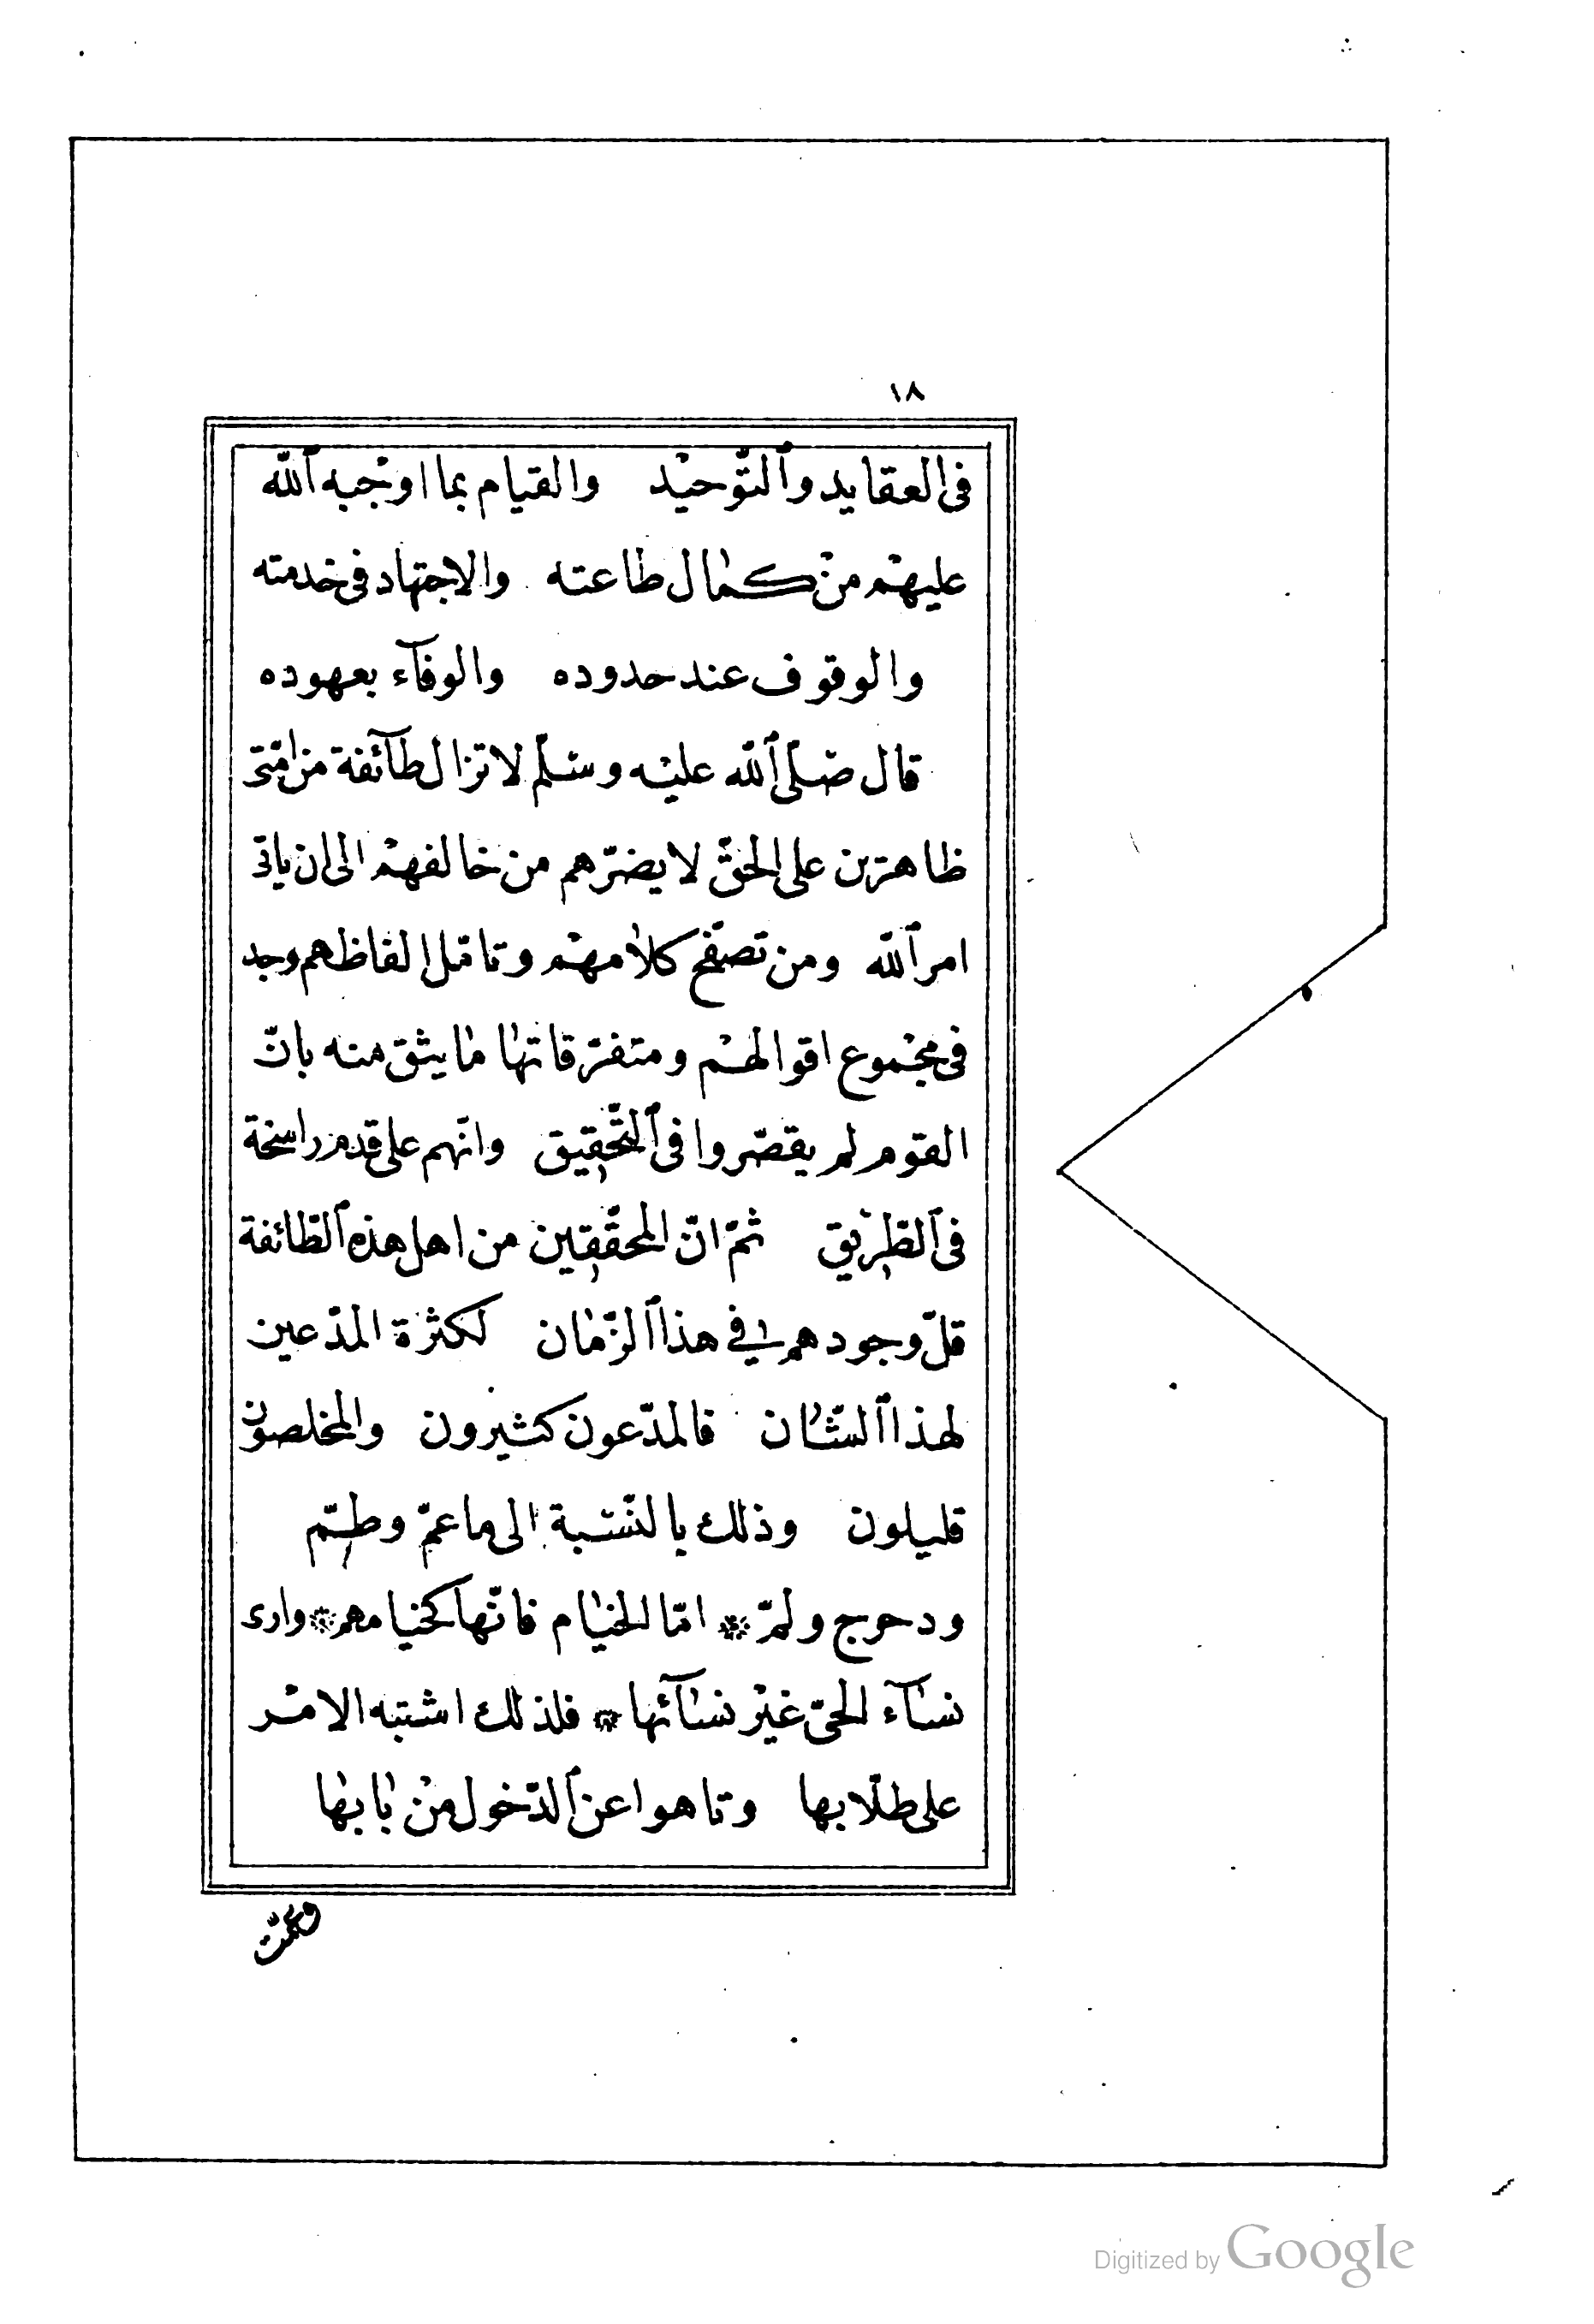 ١٨
فى العقايد وٱلتّوحيْد والقيام بما اوْجبه ٱللّه
عليهمْ منْ كمٰال طاعته والاجتهاد فى خدمته
والوقوف عند حدوده والوفآء بعهوده
قال صلّى ٱللّه عليْه وسلّم لا تزال طآئفة من امّتى
ظاهرين على الحقّ لا يضرّهم من خالفهمْ الى ان ياتى
امر ٱللّه ومن تصفّح كلامهمْ وتامّل الفاظهم وجد
فى مجْموع اقوالهمْ ومتفرّقاتهٰا مٰا يثق منه بانّ
القوم لم يقصّروا فى ٱلتّحقيق وانّهم على قدم راسخة
فى ٱلطّريق ثمّ انّ المحقّقين من اهل هذه ٱلطّائفة
قلّ وجودهم فى هذا ٱلزّمٰان لكثرة المدّعين
لهذا ٱلشّٰان فالمدّعون كثيرون والمخلصون
قليلون وذلك بالنّسْبة الى ما عمّ وطمّ
ودحرج ولمّ * امّا الخيٰام فانّها كخيامهم * وارى
نسٰآء الحىّ غيْر نسٰآئها * فلذلك اشتبه الامْر
على طلّابها وتاهوا عن ٱلدّخول منْ بٰابهٰا
Digitized by Google